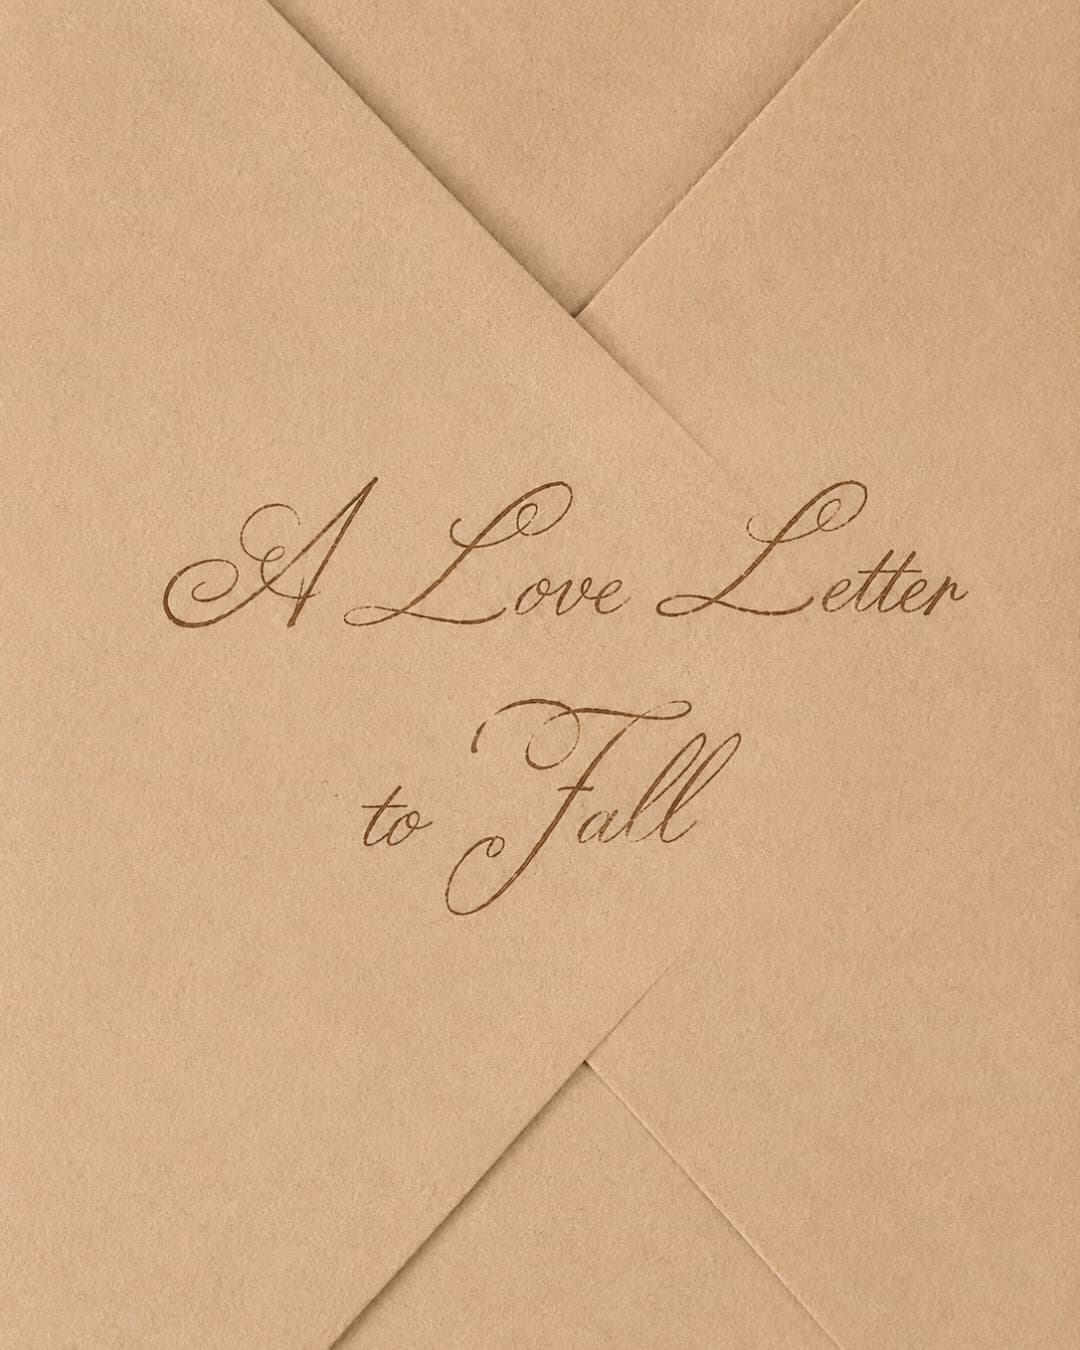 A Love Letter
to Fall